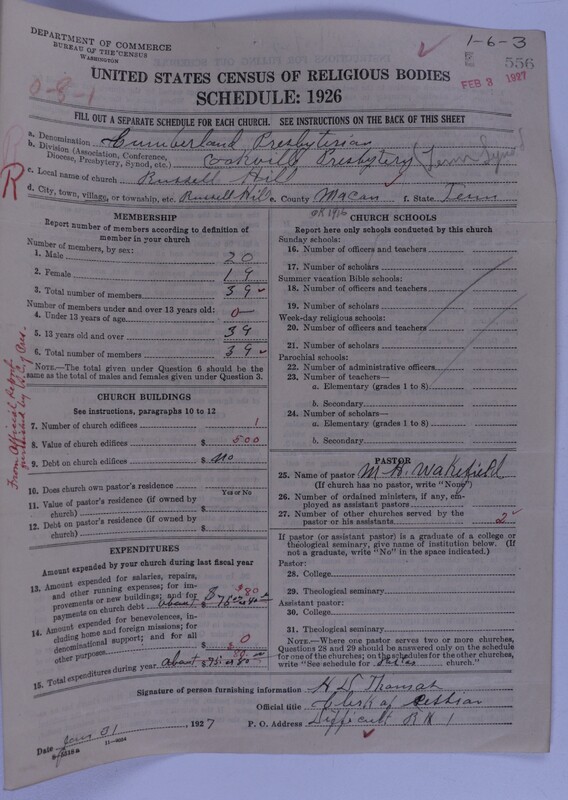 DEPARTMENT OF COMMERCE
BUREAU OF THE CENSUS
WASHINGTON
1-6-3
556
FEB 3 1927
0-8-1
UNITED STATES CENSUS OF RELIGIOUS BODIES
SCHEDULE: 1926
FILL OUT A SEPARATE SCHEDULE FOR EACH CHURCH. SEE INSTRUCTIONS ON THE BACK OF THIS SHEET
a. Denomination Cumberland Presbyterian
b. Division (Association, Conference, Diocese, Presbytery, Synod, etc.) Cookville Presbytery (Tenn Synod
c. Local name of church Russell Hill
R
d. City, town, village, or township, etc. Russell Hill e. County Macon f. State Tenn
OK 1916
MEMBERSHIP
Report number of members according to definition of member in your church
Number of members, by sex:
1. Male 20
2. Female 19
3. Total number of members 39
Number of members under and over 13 years old:
4. Under 13 years of age 0
5. 13 years old and over 39
6. Total number of members 39
NOTE.—The total given under Question 6 should be the same as the total of males and females given under Question 3.
CHURCH BUILDINGS
See instructions, paragraphs 10 to 12
7. Number of church edifices 1
8. Value of church edifices $ 500
9. Debt on church edifices $ No
10. Does church own pastor's residence
Yes or No
11. Value of pastor's residence (if owned by church) $
12. Debt on pastor's residence (if owned by church) $
From Official Report
EXPENDITURES
Amount expended by your church during last fiscal year
13. Amount expended for salaries, repairs, and other running expenses; for improvements or new buildings; and for payments on church debt about $ 75 or 80
$80
14. Amount expended for benevolences, including home and foreign missions; for denominational support; and for all other purposes $ 0
80
15. Total expenditures during year about $ 75 or 80
CHURCH SCHOOLS
Report here only schools conducted by this church
Sunday schools:
16. Number of officers and teachers
17. Number of scholars
Summer vacation Bible schools:
18. Number of officers and teachers
19. Number of scholars
Week-day religious schools:
20. Number of officers and teachers
21. Number of scholars
Parochial schools:
22. Number of administrative officers
23. Number of teachers—
a. Elementary (grades 1 to 8)
b. Secondary
24. Number of scholars—
a. Elementary (grades 1 to 8)
b. Secondary
PASTOR
25. Name of pastor M H. Wakefield
(If church has no pastor, write "None")
26. Number of ordained ministers, if any, employed as assistant pastors
27. Number of other churches served by the pastor or his assistants 2
If pastor (or assistant pastor) is a graduate of a college or theological seminary, give name of institution below. (If not a graduate, write "No" in the space indicated.)
Pastor:
28. College
29. Theological seminary
Assistant pastor:
30. College
31. Theological seminary
NOTE.—Where one pastor serves two or more churches, Questions 28 and 29 should be answered only on the schedule for one of the churches; on the schedules for the other churches, write "See schedule for church."
Signature of person furnishing information H D
Official title Clerk of Session
P. O. Address Difficult R N 1
Date Jan 31, 1927
11—9064